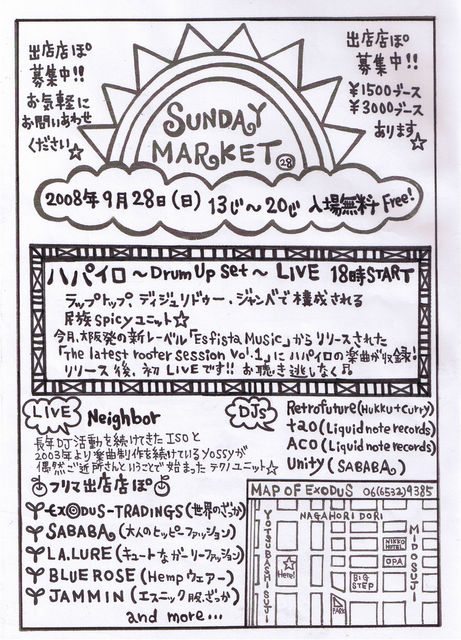 出店店ぽ
募集中!!
お気軽に
お問いあわせ
ください☆
出店店ぽ
募集中!!
¥1500ブース
¥3000ブース
あります☆
SUNDAY
MARKET 28
2008年9月28日(日) 13じ〜20じ 入場無料 Free!
ハパイロ 〜Drum Up Set〜 LIVE 18時START
ラップトップ ディジュリドゥー・ジャンベで構成される
民族spicyユニット☆
今月、大阪発の新レーベル「Esfista Music」からリリースされた
「The latest rooter session Vol.1」にハパイロの楽曲が収録!
リリース後、初LIVEです!! お聴き逃しなく
LIVE Neighbor
長年DJ活動を続けてきたISOと
2003年より楽曲制作を続けているYossyが
偶然ご近所さんということで始まったテクノユニット☆
DJs Retrofuture(Hukku+Curry)
t20(Liquid note records)
ACO(Liquid note records)
Unity(SABABA。)
フリマ出店店ぽ
EXODUS-TRADINGS(世界のざっか)
SABABA。(大人のヒッピーファッション)
LA.LURE(キュートなガーリーファッション)
BLUE ROSE(Hempウェアー)
JAMMIN(エスニック服、ざっか)
and more...
MAP OF EXODUS 06(6532)9385
NAGAHORI DORI
YOTSUBASHI SUJI
MIDOSUJI
Here!
NIKKO
HOTEL
OPA
BIG
STEP
PARK